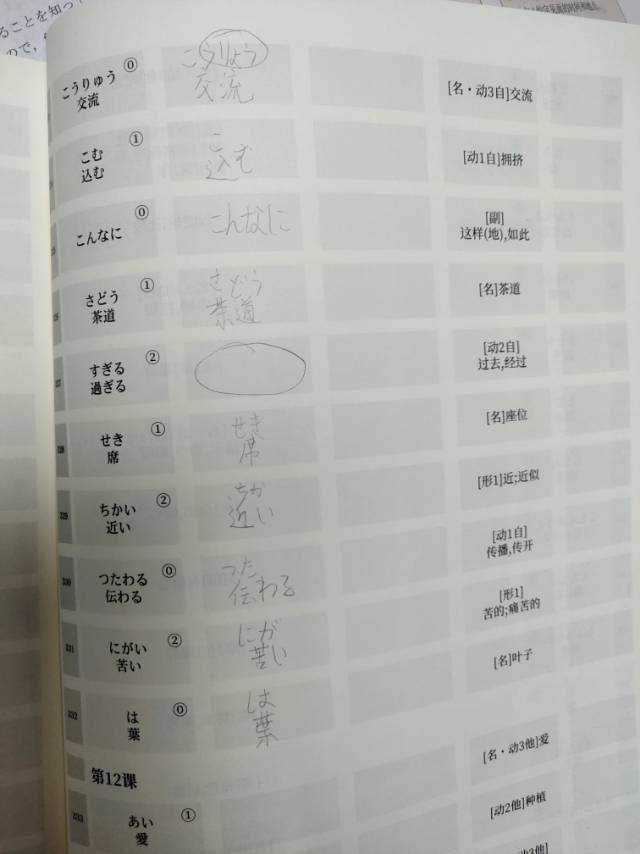 ることを知っ
ので、
こうりゅう ⓪
交流
こうりょう
交流
[名・动3自]交流
こむ ①
込む
こ
込む
[动1自]拥挤
こんなに ⓪
こんなに
[副]
这样(地),如此
さどう ①
茶道
さどう
茶道
[名]茶道
すぎる ②
過ぎる
[动2自]
过去,经过
せき ①
席
せき
席
[名]座位
ちかい ②
近い
ちか
近い
[形1]近;近似
つたわる ⓪
伝わる
つた
伝わる
[动1自]
传播,传开
にがい ②
苦い
にが
苦い
[形1]
苦的;痛苦的
は ⓪
葉
は
葉
[名]叶子
第12课
あい ①
愛
[名・动3他]爱
[动2他]种植